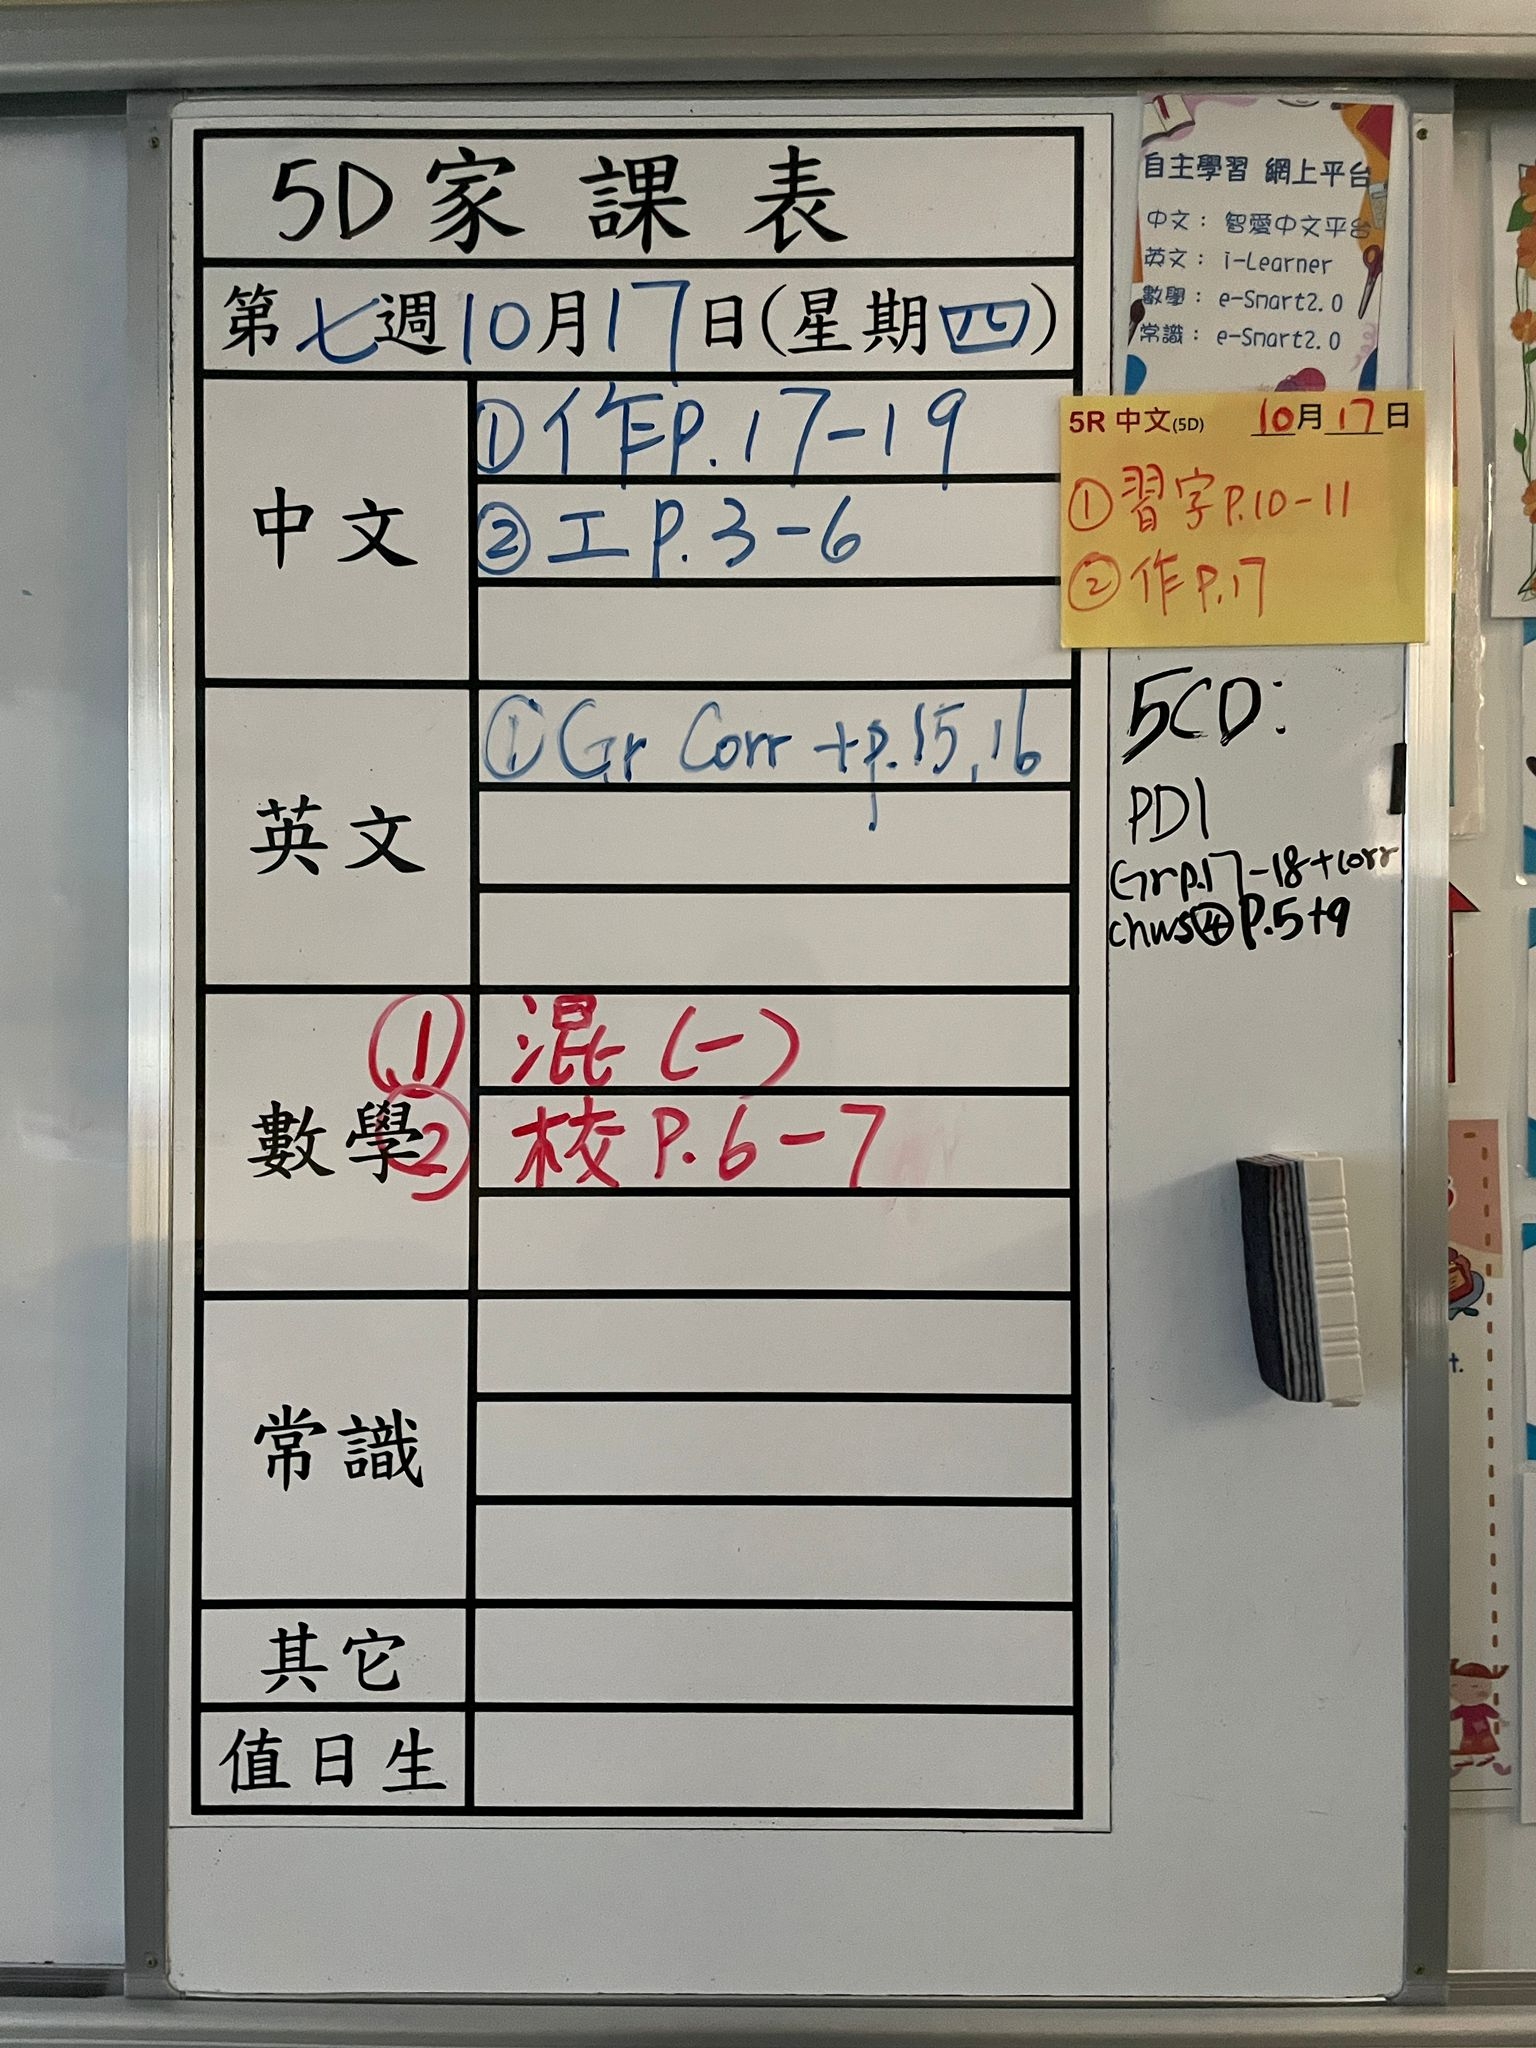 5D家課表
第七週10月17日(星期四)
中文
①作P.17-19
②工P.3-6
英文
①Gr Corr +p.15,16
數學
① 混(一)
② 校P.6-7
常識
其它
值日生
自主學習 網上平台
中文： 智愛中文平台
英文： i-Learner
數學： e-Smart2.0
常識： e-Smart2.0
5R 中文(5D) 10月17日
①習字P.10-11
②作P.17
5CD:
PD1
Gr p.17-18+corr
chws④P.5+9